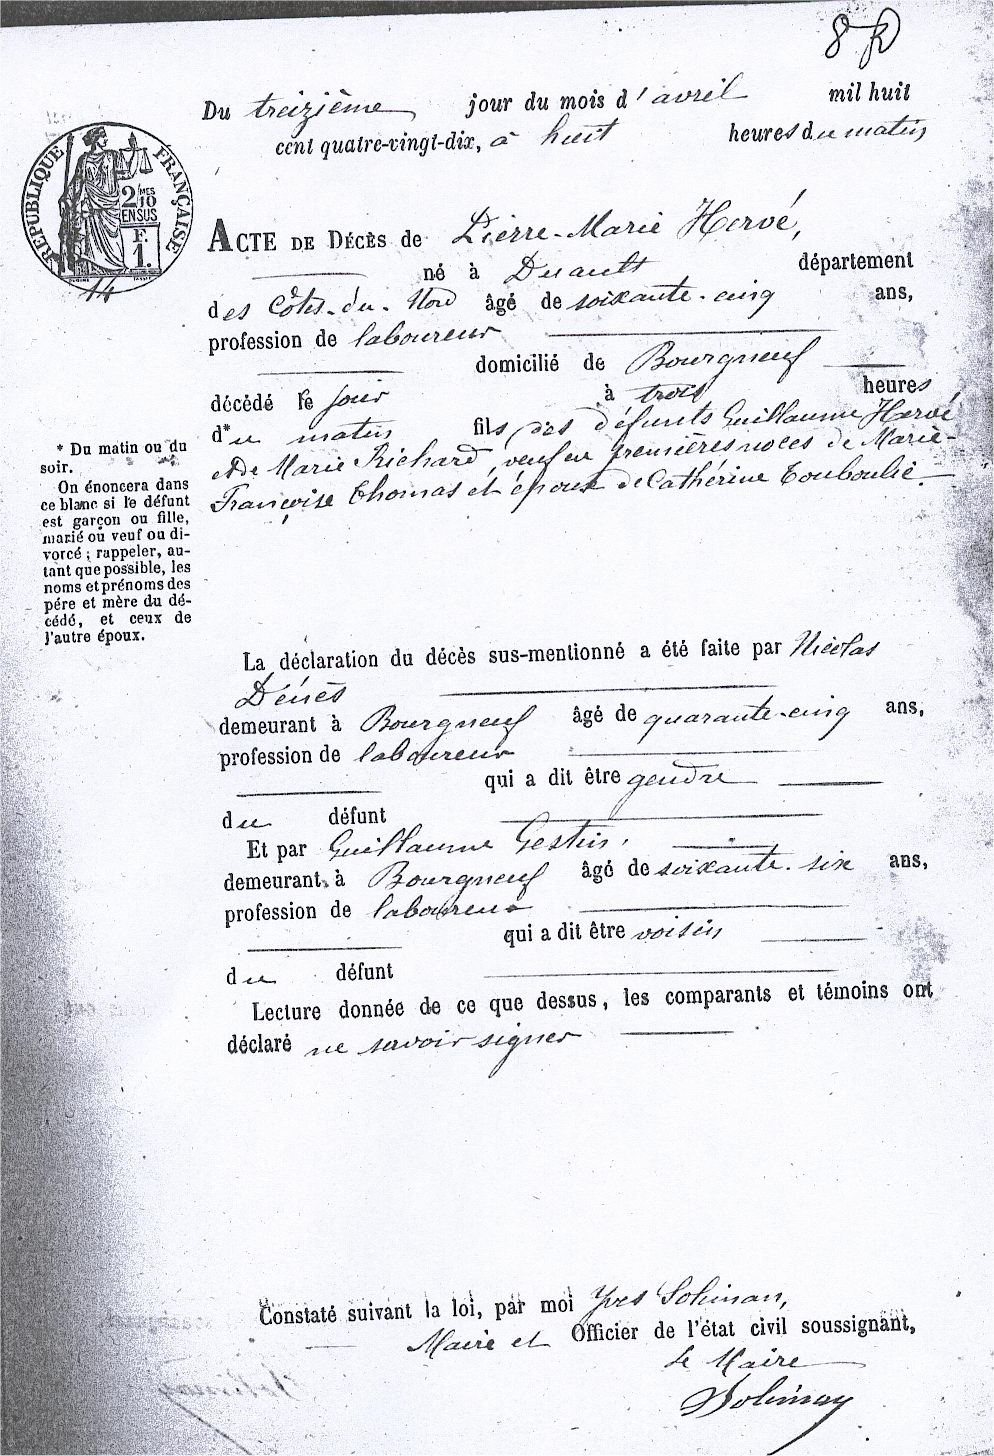 8
Du treizième jour du mois d'avril mil huit
cent quatre-vingt-dix, à huit heures du matin
RÉPUBLIQUE FRANÇAISE
2/10 MES
EN SUS
F.
1.
14
ACTE DE DÉCÈS de Pierre-Marie Hervé,
né à Duault département
des Côtes-du-Nord âgé de soixante-cinq ans,
profession de laboureur
domicilié de Bourgneuf
décédé le jour à trois heures
d*u matin fils des défunts Guillaume Hervé
et de Marie Richard, veuf en premières noces de Marie-
Françoise Thomas et époux de Cathérine Touboulic.
* Du matin ou du
soir.
On énoncera dans
ce blanc si le défunt
est garçon ou fille,
marié ou veuf ou di-
vorcé ; rappeler, au-
tant que possible, les
noms et prénoms des
pére et mère du dé-
cédé, et ceux de
l'autre époux.
La déclaration du décès sus-mentionné a été faite par Nicolas
Dénès
demeurant à Bourgneuf âgé de quarante-cinq ans,
profession de laboureur
qui a dit être gendre
du défunt
Et par Guillaume Gestin,
demeurant à Bourgneuf âgé de soixante-six ans,
profession de laboureur
qui a dit être voisin
du défunt
Lecture donnée de ce que dessus, les comparants et témoins ont
déclaré ne savoir signer
Constaté suivant la loi, par moi Yves
Maire et Officier de l'état civil soussignant,
Le Maire